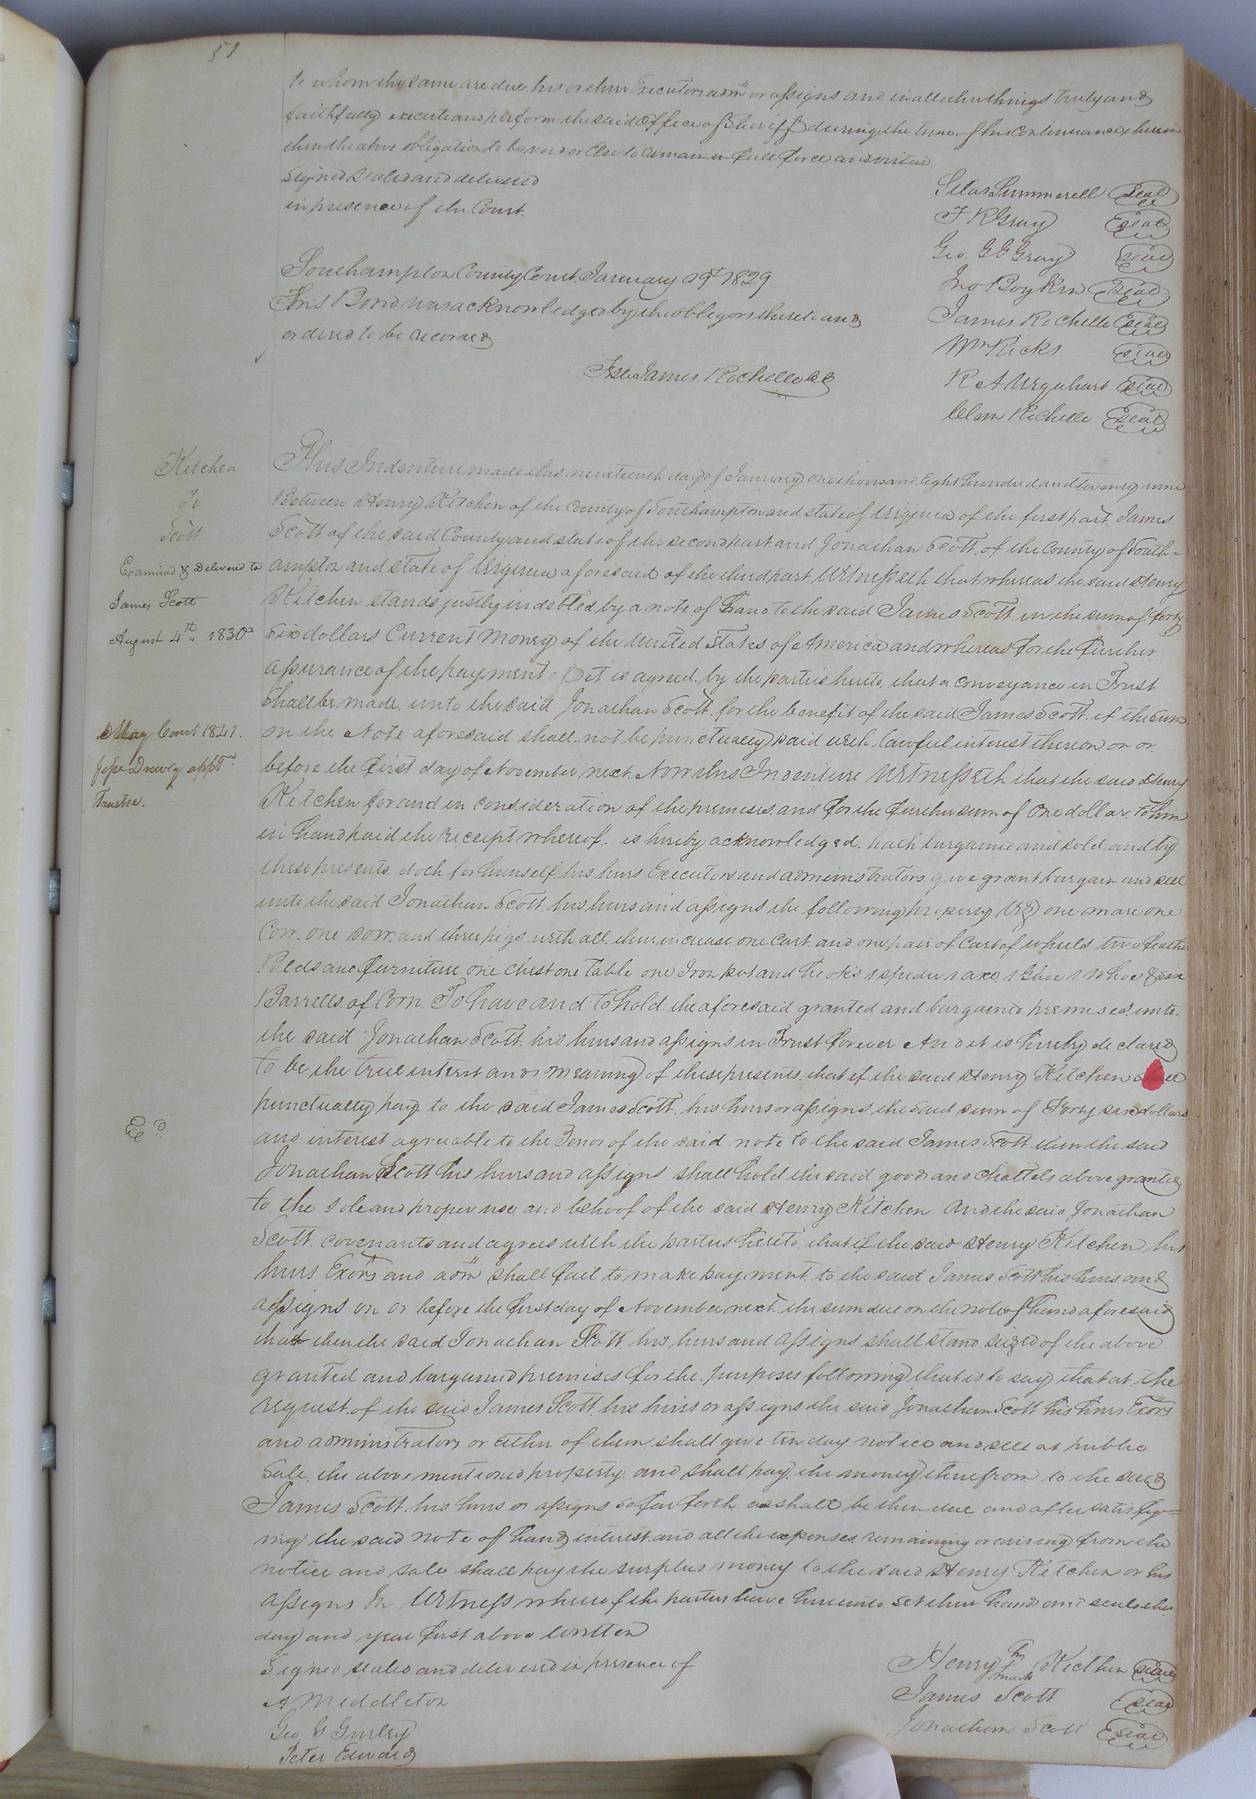 51
to whom the same are due, his or their Executors admrs or assigns and in all other things truly and
faithfully execute and perform the said Office of Sheriff during the time of his continuance therein
then the above obligation to be void or Else to remain in full force and virtue
Signed Sealed and delivered
in presence of the Court.
Silas Summerell Seal
F R Gray Seal
Geo. G G Gray Seal
Jno Boykin Seal
James Rochelle Seal
Wm Ricks Seal
R A Urquhart Seal
Clem Rochelle Seal
Southampton County Court January 19th 1829
This Bond was acknowledged by the obligors thereto and
ordered to be recorded
Teste James Rochelle CC
Kitchen
To
Scott
Examined & delivered to
James Scott
August 4th 1830
May Court 1841.
Jesse Drewry appt
Trustee.
Exd
This Indenture made this nineteenth day of January one thousand Eight hundred and twenty nine
Between Henry Kitchen of the County of Southampton and state of Virginia of the first part James
Scott of the said County and state of the second part and Jonathan Scott of the County of South-
ampton and State of Virginia aforesaid of the third part Witnesseth that whereas the said Henry
Kitchen stands justly indebted by a note of hand to the said James Scott in the sum of forty
Six dollars Current Money of the United States of America and whereas for the further
assurance of the payment it is agreed by the parties hereto, that a conveyance in Trust
Shall be made unto the said Jonathan Scott for the benefit of the said James Scott if the sum
on the Note aforesaid shall not be punctually paid with lawful interest thereon on or
before the first day of November next. Now this Indenture Witnesseth that the said Henry
Kitchen for and in consideration of the premises and for the further sum of One dollar to him
in hand paid the receipt whereof is hereby acknowledged, hath bargained and sold and by
these presents doth for himself his heirs Executors and administrators give grant bargain and sell
unto the said Jonathan Scott his heirs and assigns the following property (Viz) one mare one
Cow, one sow, and three pigs with all their increase one Cart and one pair of Cart wheels two feather
Beds and furniture one chest one Table one Iron pot and hooks 1 spider 1 axe 1 hoe
Barrells of Corn To have and to hold the aforesaid granted and bargained premises unto
the said Jonathan Scott his heirs and assigns in Trust forever And it is hereby declared
to be the true intent and meaning of these presents, that if the said Henry Kitchen shall
punctually pay to the said James Scott, his heirs or assigns the said sum of Forty six dollars
and interest agreeable to the Tenor of the said note to the said James Scott then the said
Jonathan Scott his heirs and assigns shall hold the said goods and Chattels above granted
to the sole and proper use and behoof of the said Henry Kitchen And the said Jonathan
Scott covenants and agrees with the parties hereto, that if the said Henry Kitchen his
heirs Exors and adm shall fail to make payment to the said James Scott his heirs and
assigns on or before the first day of November next the sum due on the note of hand aforesaid
that then the said Jonathan Scott his heirs and assigns shall stand seized of the above
granted and bargained premises for the purposes following that is to say, that at the
request of the said James Scott his heirs or assigns the said Jonathan Scott his heirs Exors
and administrators or either of them shall give ten day notice and sell at public
Sale, the above mentioned property, and shall pay the money therefrom to the said
James Scott, his heirs or assigns so far forth as shall be then due and after satisfy-
ing the said note of hand interest and all the expenses remaining or arising from the
notice and sale shall pay the surplus money to the said Henry Kitchen or his
assigns In Witness whereof the parties have hereunto set their hands and seals the
day and year first above written
Signed sealed and delivered in presence of
A Middleton
Geo W Gurley
Peter Edwards
Henry his + mark Kitchen Seal
James Scott Seal
Jonathan Scott Seal